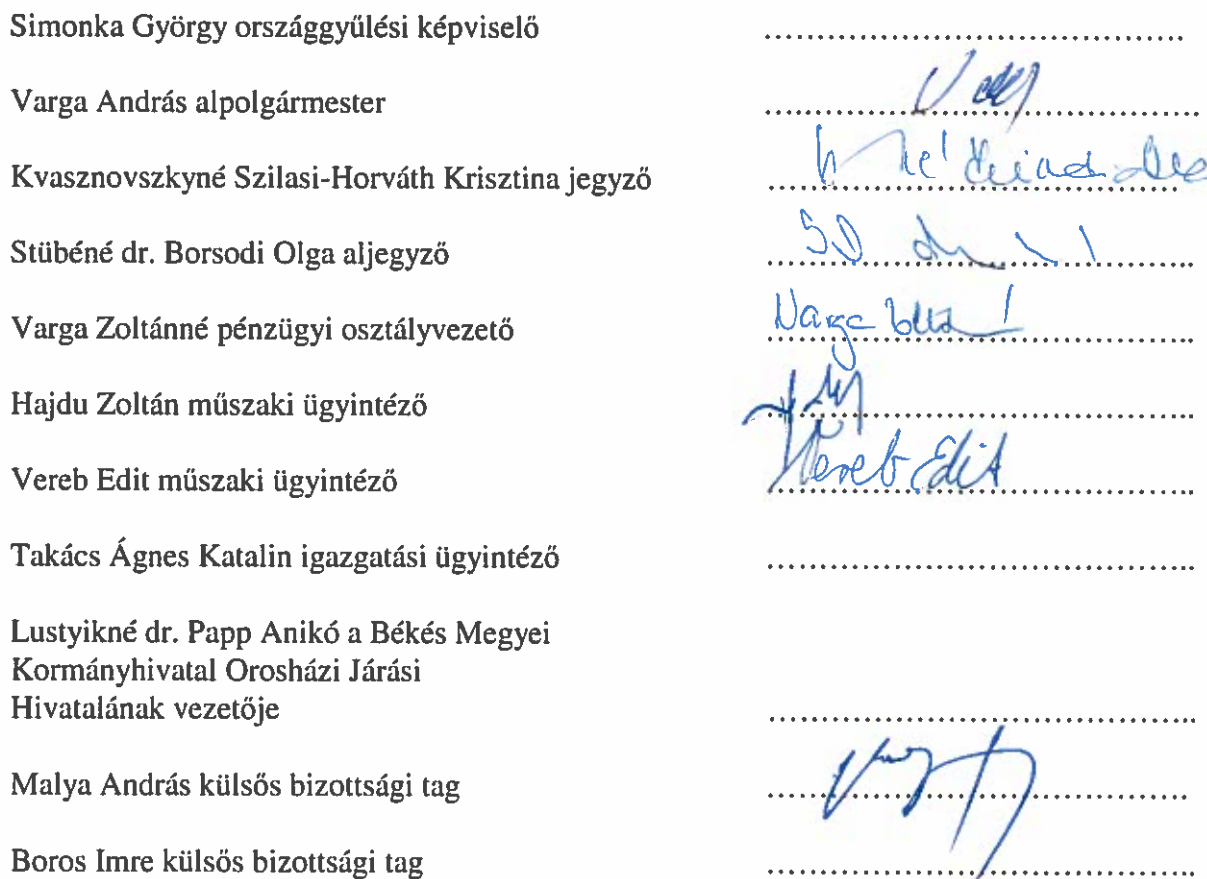 Simonka György országgyűlési képviselő ........................................
Varga András alpolgármester ........................................
Kvasznovszkyné Szilasi-Horváth Krisztina jegyző ........................................
Stübéné dr. Borsodi Olga aljegyző ........................................
Varga Zoltánné pénzügyi osztályvezető ........................................ Varga
Hajdu Zoltán műszaki ügyintéző ........................................
Vereb Edit műszaki ügyintéző ........................................ Vereb Edit
Takács Ágnes Katalin igazgatási ügyintéző ........................................
Lustyikné dr. Papp Anikó a Békés Megyei
Kormányhivatal Orosházi Járási
Hivatalának vezetője ........................................
Malya András külsős bizottsági tag ........................................
Boros Imre külsős bizottsági tag ........................................